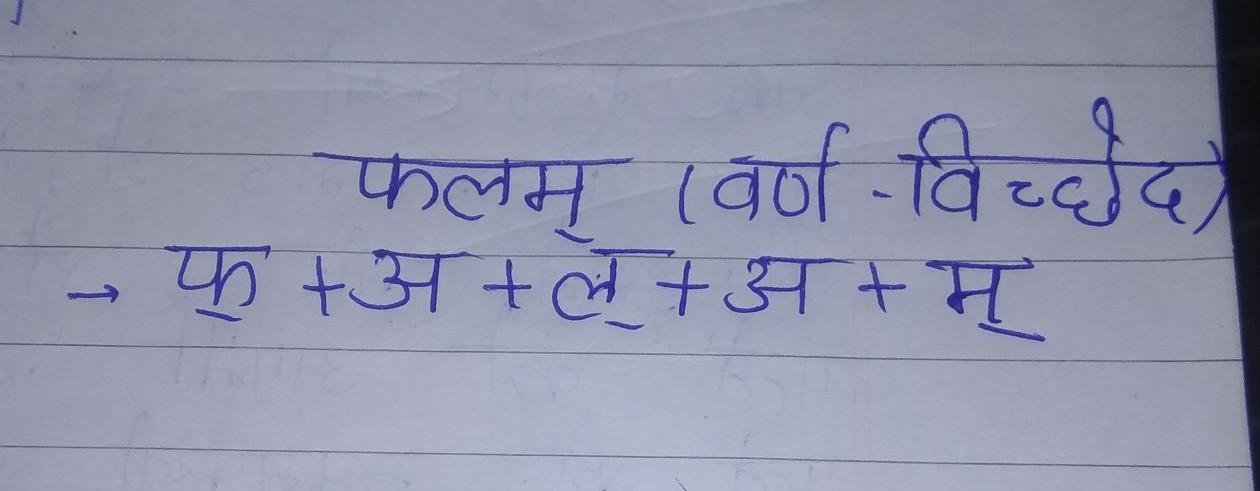 फलम् (वर्ण - विच्छेद)
→ फ् + अ + ल् + अ + म्